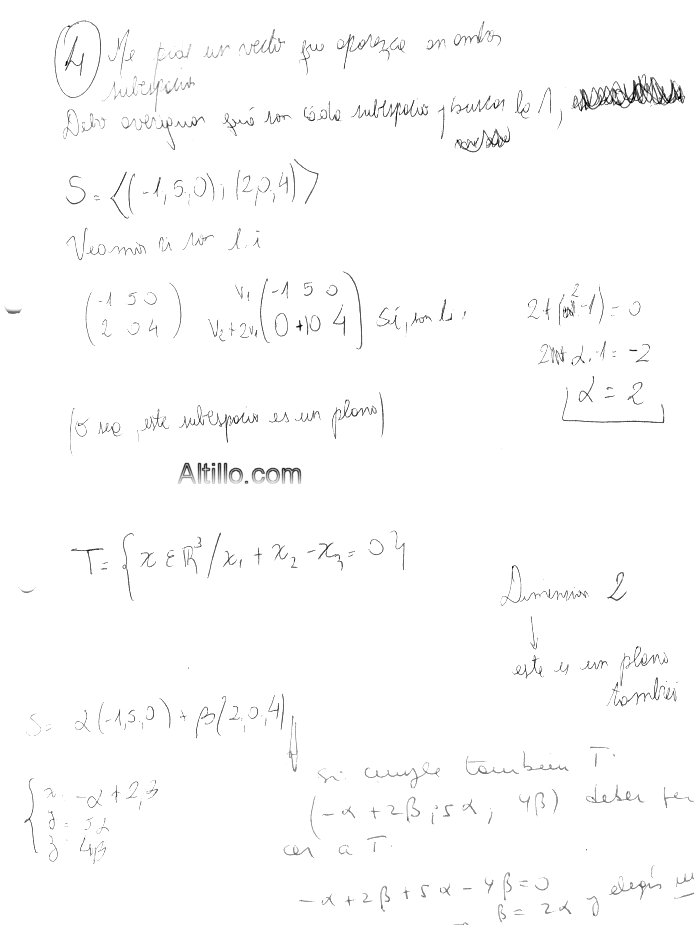 4 Me piden un vector que aparezca en ambos
subespacios
Debo averiguar qué son cada subespacio y buscar la ∩,
S = ⟨(-1, 5, 0); (2, 0, 4)⟩
Veamos si son l.i
(-1 5 0) V1 (-1 5 0)
(2 0 4) V2+2V1 (0 +10 4) Sí, son l.i
2 + (α · -1) = 0
α · -1 = -2
α = 2
(O sea, este subespacio es un plano)
Altillo.com
T = {x ∈ ℝ³ / x₁ + x₂ - x₃ = 0}
Dimension 2
↓
este es un plano
también
S = α(-1, 5, 0) + β(2, 0, 4)
x = -α + 2β
y = 5α
z = 4β
si cumple también T.
(-α + 2β; 5α; 4β) deber per
cer a T.
-α + 2β + 5α - 4β = 0
β = 2α y elegís